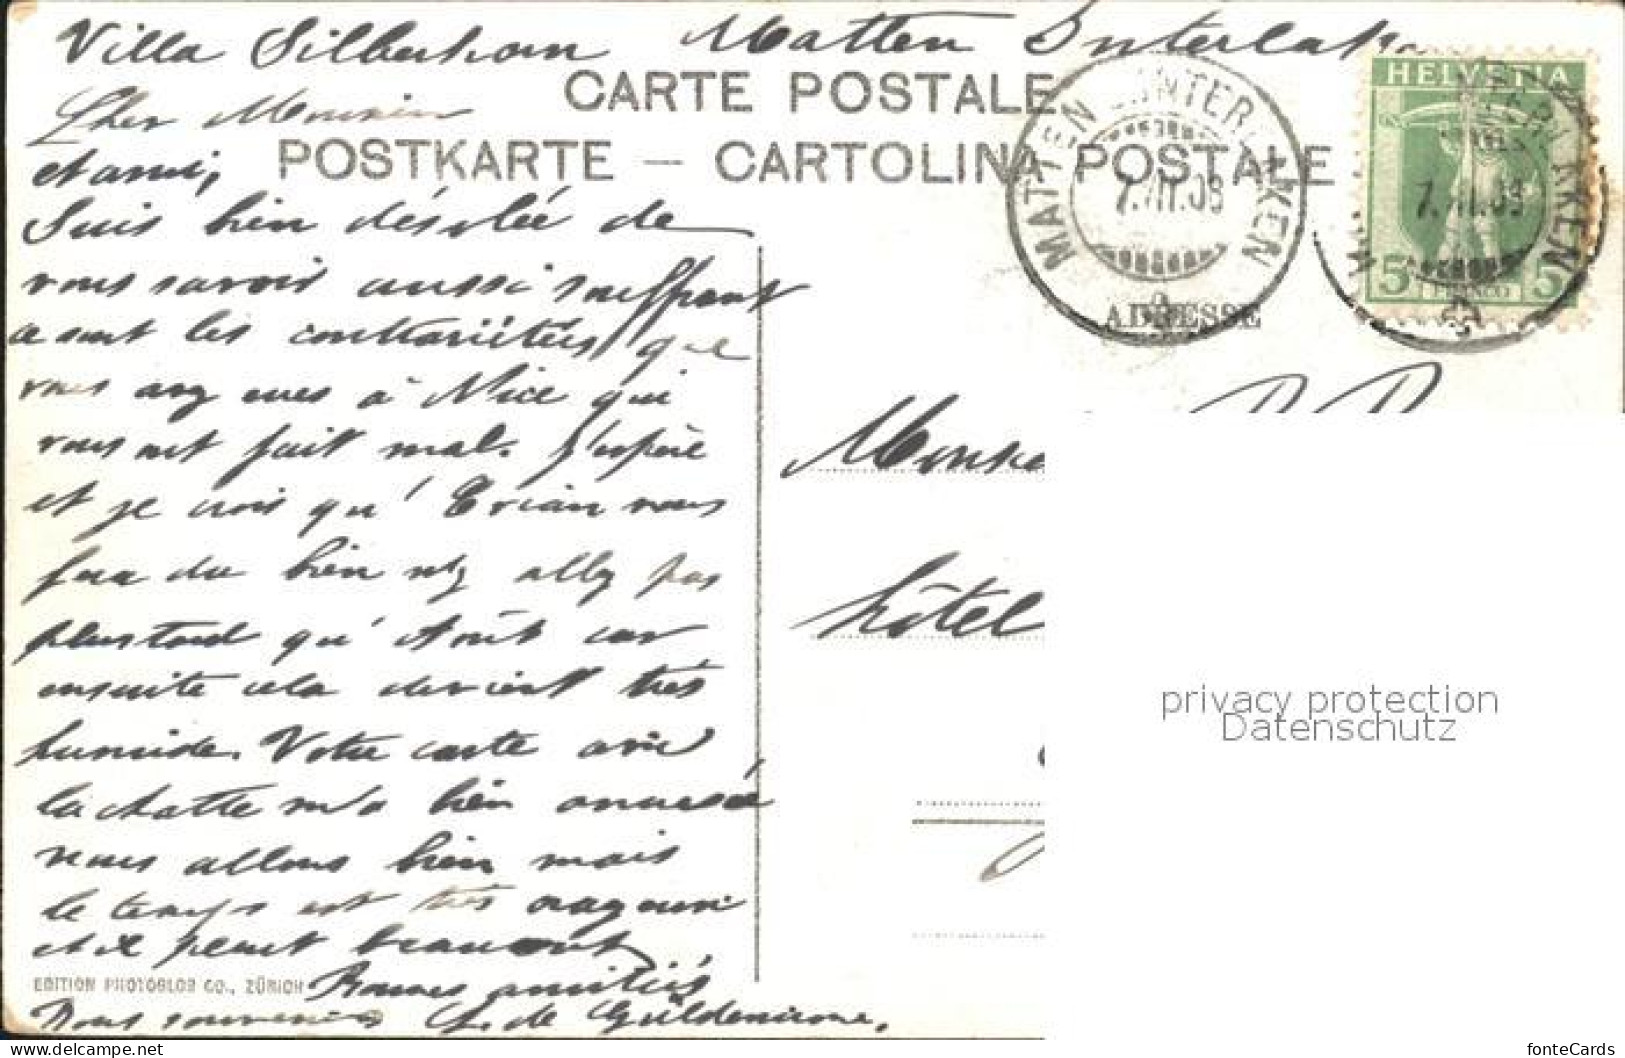 Villa Silberhorn Matten Interlaken
CARTE POSTALE
POSTKARTE — CARTOLINA POSTALE
MATTEN INTERLAKEN
7.VII.09
HELVETIA
5 FRANCO 5
ADRESSE
Cher Monsieur
et ami,
Suis bien désolée de
vous savoir aussi souffrant
ce sont les contrariétés que
vous avez eues à Nice qui
vous ont fait mal. J'espère
et je crois qu' Evian vous
fera du bien n'y allez pas
plus tard qu' Août car
ensuite cela devient très
humide. Votre carte avec
la chatte m'a bien amusée
nous allons bien mais
le temps est très
et il pleut beaucoup
Bonnes amitiés
Bons souvenirs de Güldenicrone.
EDITION PHOTOGLOB CO., ZÜRICH
Monsieur
hôtel
privacy protection
Datenschutz
https://www.delcampe.net
fonteCards